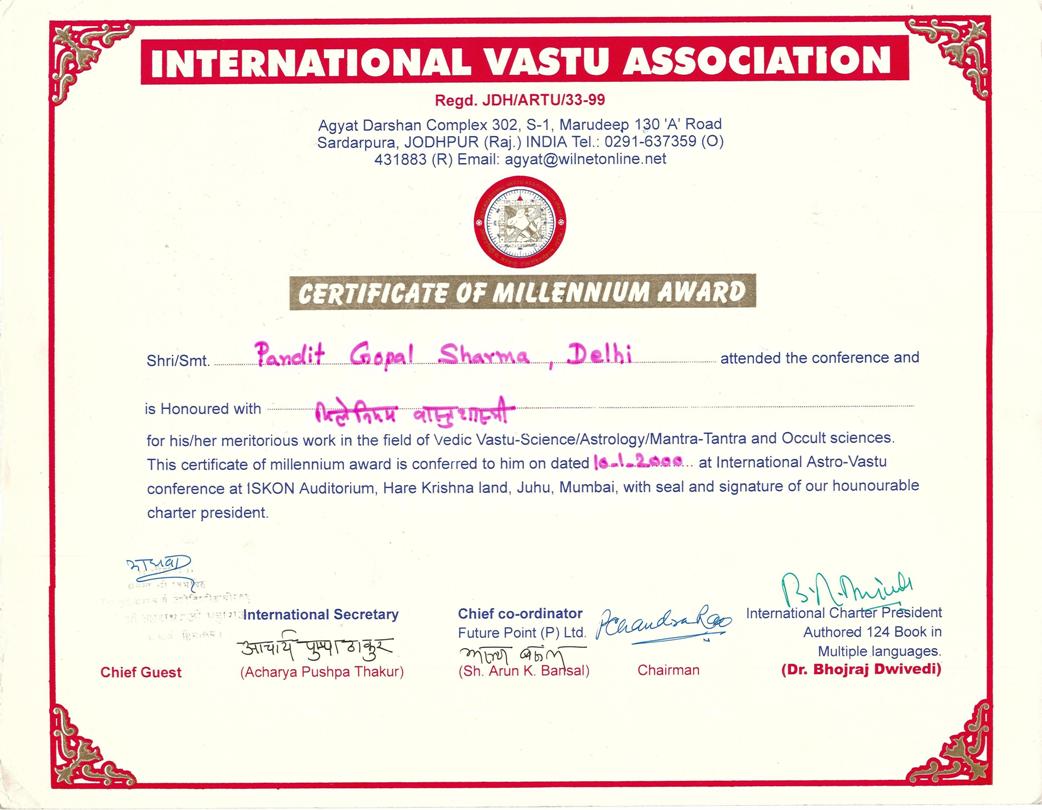 INTERNATIONAL VASTU ASSOCIATION
Regd. JDH/ARTU/33-99
Agyat Darshan Complex 302, S-1, Marudeep 130 'A' Road
Sardarpura, JODHPUR (Raj.) INDIA Tel.: 0291-637359 (O)
431883 (R) Email: agyat@wilnetonline.net
CERTIFICATE OF MILLENNIUM AWARD
Shri/Smt. Pandit Gopal Sharma, Delhi attended the conference and
is Honoured with मिलेनियम वास्तुशास्त्री
for his/her meritorious work in the field of Vedic Vastu-Science/Astrology/Mantra-Tantra and Occult sciences.
This certificate of millennium award is conferred to him on dated 10.1.2000... at International Astro-Vastu
conference at ISKON Auditorium, Hare Krishna land, Juhu, Mumbai, with seal and signature of our hounourable
charter president.
International Secretary
आचार्य पुष्पा ठाकुर
(Acharya Pushpa Thakur)
Chief Guest
Chief co-ordinator
Future Point (P) Ltd.
अरुण बंसल
(Sh. Arun K. Bansal)
Chairman
International Charter President
Authored 124 Book in
Multiple languages.
(Dr. Bhojraj Dwivedi)